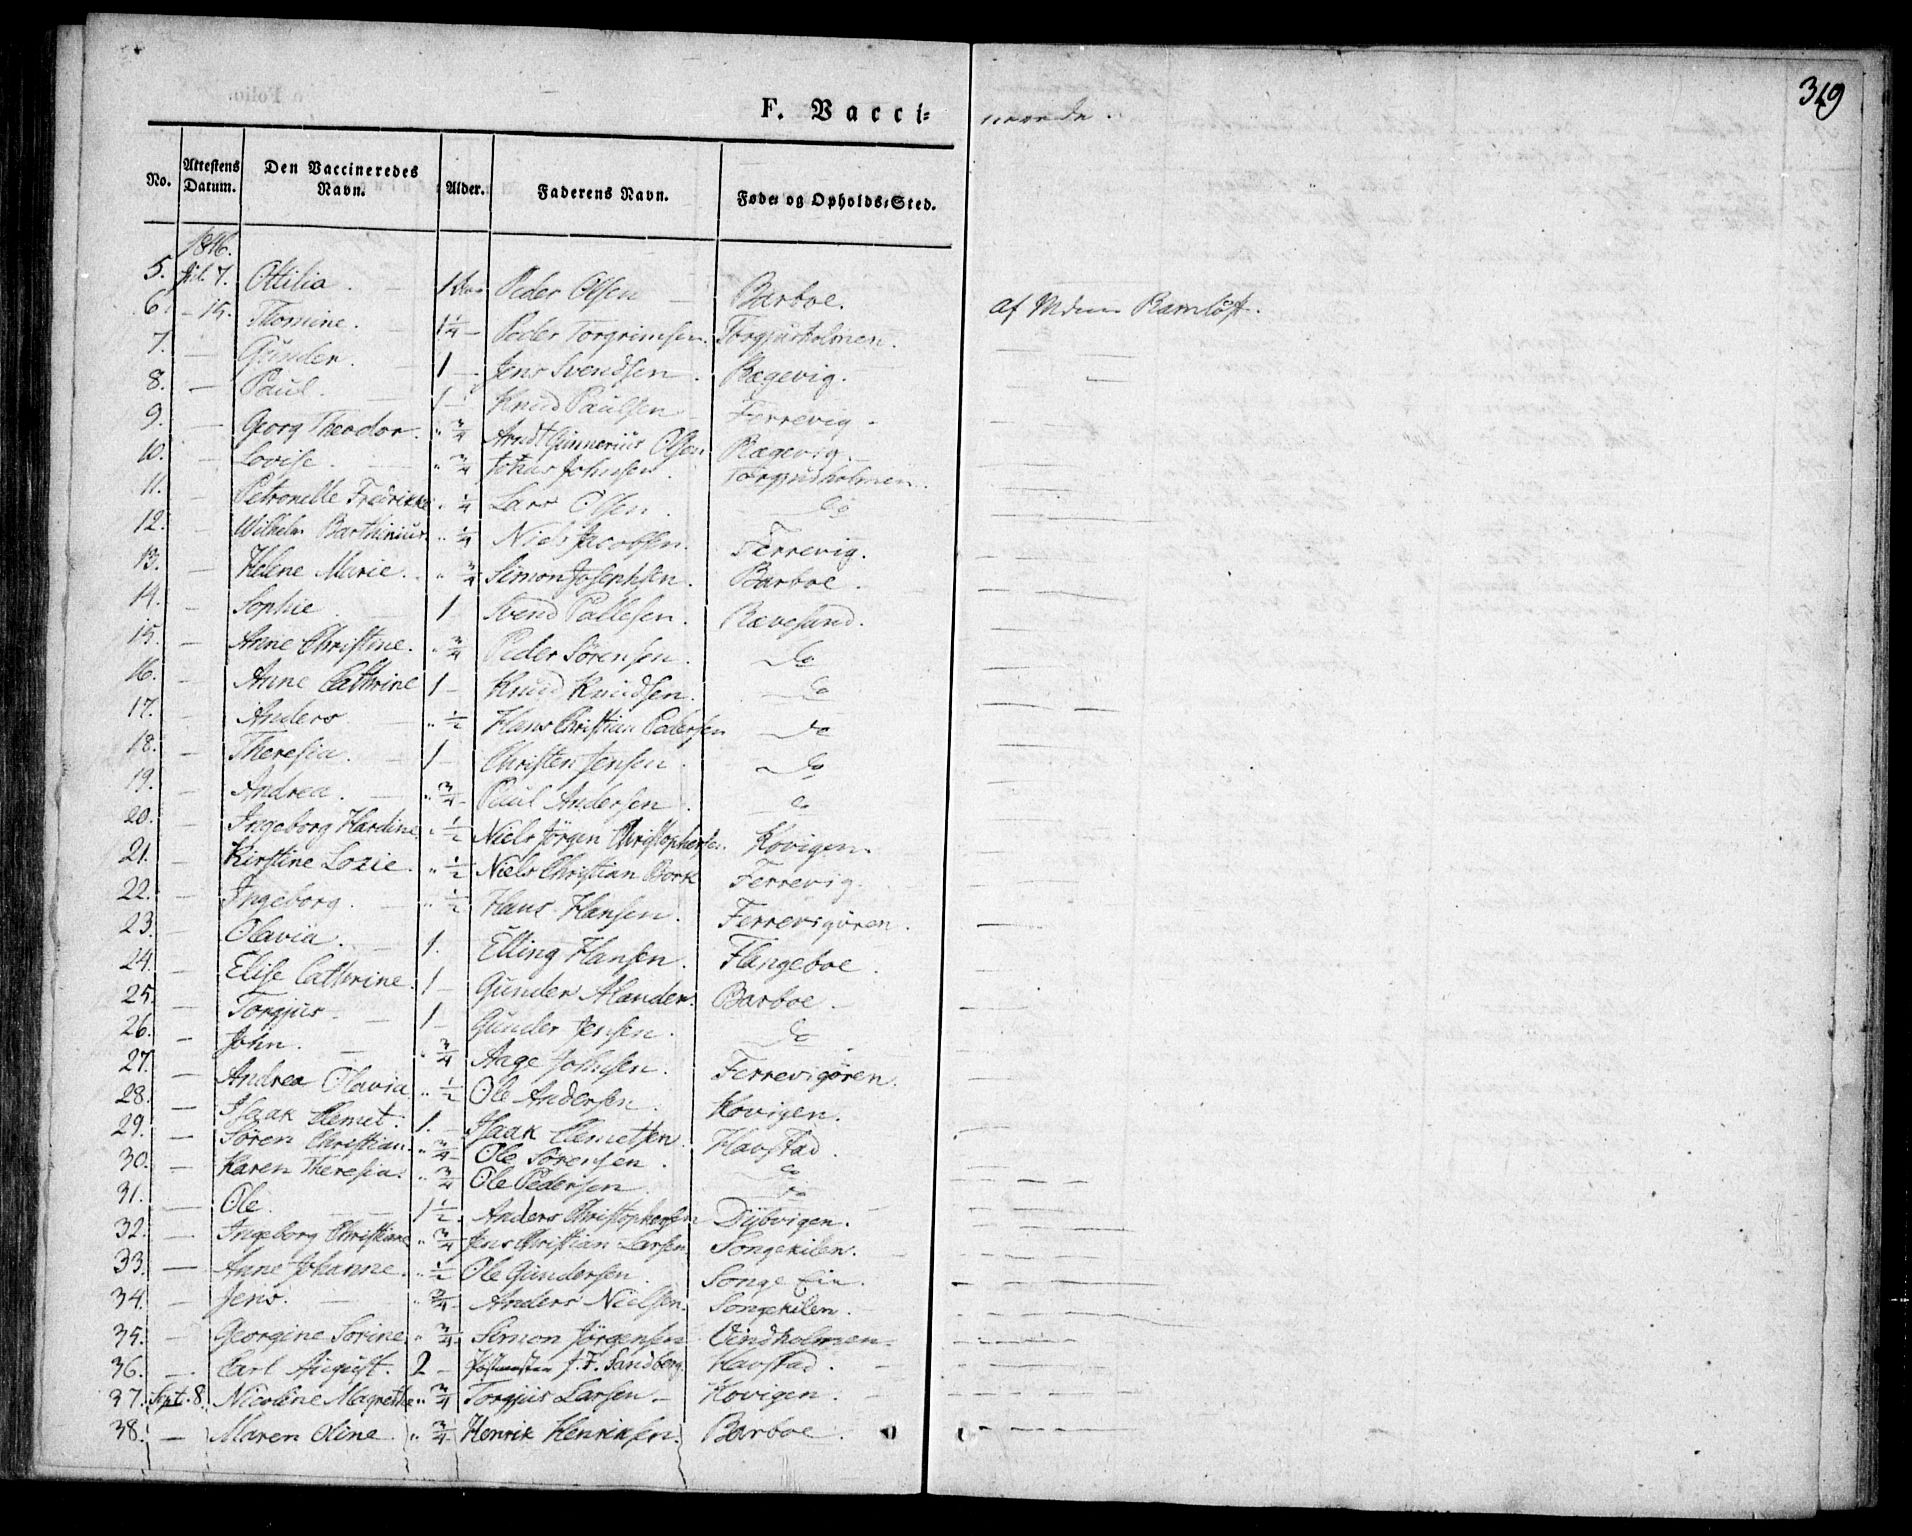 349
F. Vacci-
neerede.
No. Attestens Datum. Den Vaccineredes Navn. Alder. Faderens Navn. Føde- og Opholds-Sted.
1846.
5. Jul. 7. Ottilia. 1 Peder Olsen Barboe.
6. - 15. Thomine. 1 1/4 Peder Torgrimsen. Torgjusholmen. af Mdme Ramløft.
7. — Gunder. 1 Jens Svendsen. Rægevig.
8. — Paul. 1 Knud Paulsen Ferrevig.
9. — Georg Theodor. " 3/4 Arndt Gunnerius Olsen Rægevig.
10. — Lovise. " 3/4 Johnsen. Torgjusholmen.
11. — Petronelle Fredrikke " 1/4 Lars Olsen. do
12. — Wilhelm Barthinius. " 1/4 Niels Jacobsen. Ferrevig.
13. — Helene Marie. " 3/4 Simon Josephsen. Barboe.
14. — Sophie 1 Svend Pallesen. Rævesand.
15. — Anne Christine. " 3/4 Peder Sörensen. do
16. — Anne Cathrine 1 Knud Knudsen. do
17. — Anders " 1/2 Hans Christian Pedersen do
18. — Theresia. 1 Christen Jensen. do
19. — Andrea. " 3/4 Paul Andersen. do
20. — Ingeborg Hardine " 1/2 Niels Jörgen Christophersen. Kovigen.
21. — Kirstine Lovie. " 1/2 Niels Christian Bork Ferrevig.
22. — Ingeborg. " 1/2 Hans Hansen. Ferrevigøren.
23. — Olavia. 1. Elling Hansen. Flangeboe.
24. — Elise Cathrine. 1 Gunder Alander. Barboe.
25. — Torgjus 1 Gunder Jensen. do
26. — John. " 3/4 Aage Johnsen. Ferrevigøren.
27. — Andrea Olavia " 1/2 Ole Andersen. Kovigen.
28. — Isaak Clemet. 1. Isaak Clemetsen. Havstad.
29. — Sören Christian. " 3/4 Ole Sörensen. do
30. — Karen Theresia. " 3/4 Ole Pedersen do
31. — Ole. 1 1/2 Anders Christophersen Dybvigen.
32. — Ingeborg Christiane " 3/4 Jens Christian Larsen Songekilen.
33. — Anne Johanne. " 1/2 Ole Gundersen. Songe Eie.
34. — Jens. " 3/4 Anders Nielsen. Songekilen.
35. — Georgine Sorine " 3/4 Simon Jörgensen Vindholmen.
36. — Carl August. 2 Postmester J. F. Sandberg. Havstad.
37. Sept. 8. Nicoline Magrethe " 3/4 Torgjus Larsen Kovigen.
38. — Maren Oline. " 3/4 Henrik Henriksen. Barboe.